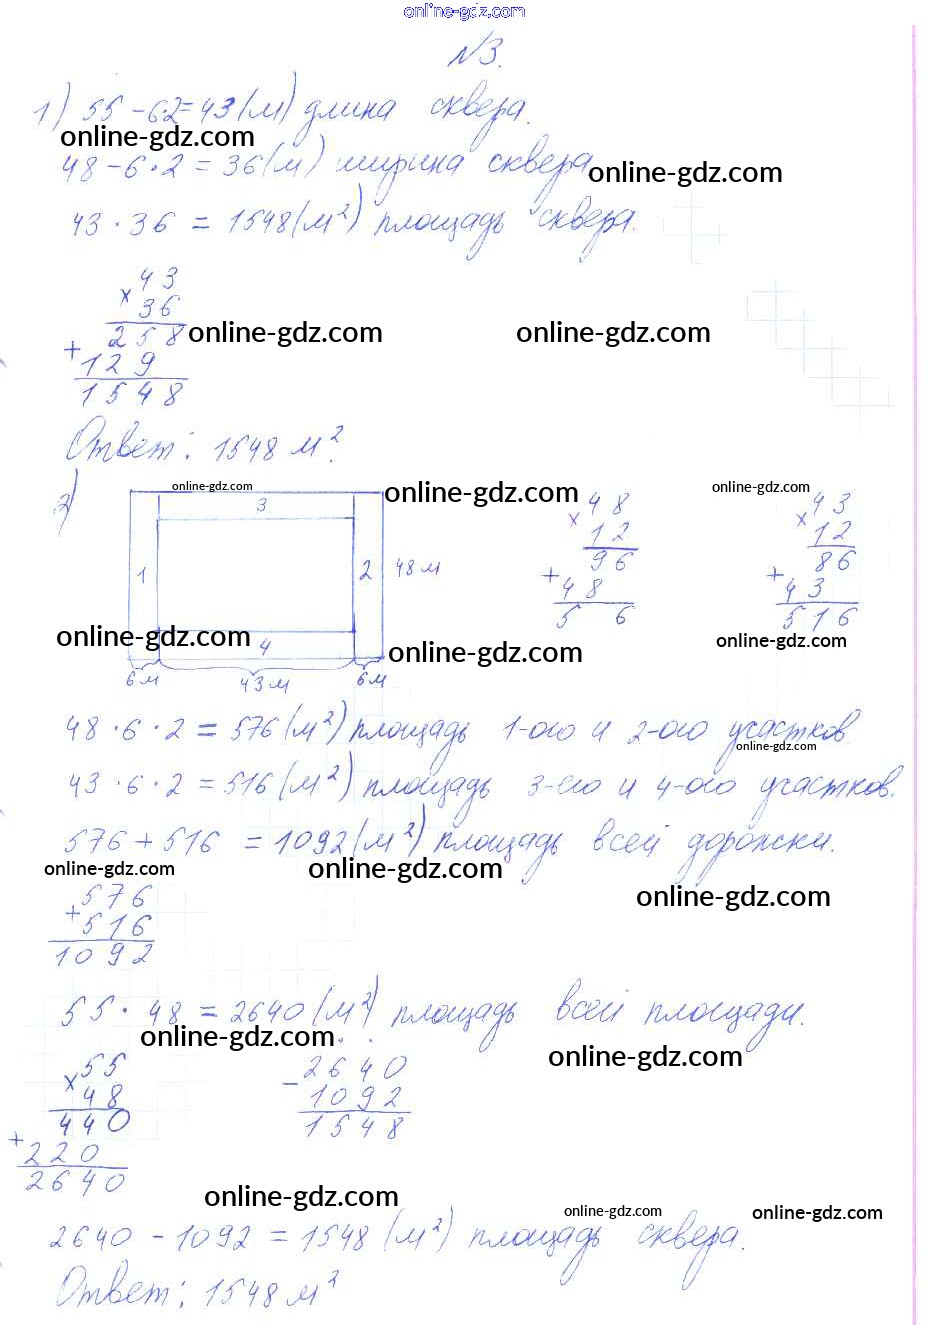 online-gdz.com
№3.
1) 55 - 6·2 = 43 (м) длина сквера.
online-gdz.com
48 - 6 · 2 = 36 (м) ширина сквера
online-gdz.com
43 · 36 = 1548 (м²) площадь сквера.
43
× 36
258
online-gdz.com
online-gdz.com
+ 129
1548
Ответ: 1548 м².
2)
online-gdz.com
online-gdz.com
online-gdz.com
3
1
2
48 м
4
6 м
43 м
6 м
online-gdz.com
online-gdz.com
48
× 12
96
+ 48
5 6
43
× 12
86
+ 43
516
online-gdz.com
48 · 6 · 2 = 576 (м²) площадь 1-ого и 2-ого участков
online-gdz.com
43 · 6 · 2 = 516 (м²) площадь 3-его и 4-ого участков.
576 + 516 = 1092 (м²) площадь всей дорожки.
online-gdz.com
online-gdz.com
online-gdz.com
576
+ 516
1092
55 · 48 = 2640 (м²) площадь всей площади.
online-gdz.com
online-gdz.com
55
× 48
440
+ 220
2640
2640
- 1092
1548
online-gdz.com
online-gdz.com
online-gdz.com
2640 - 1092 = 1548 (м²) площадь сквера.
Ответ: 1548 м²